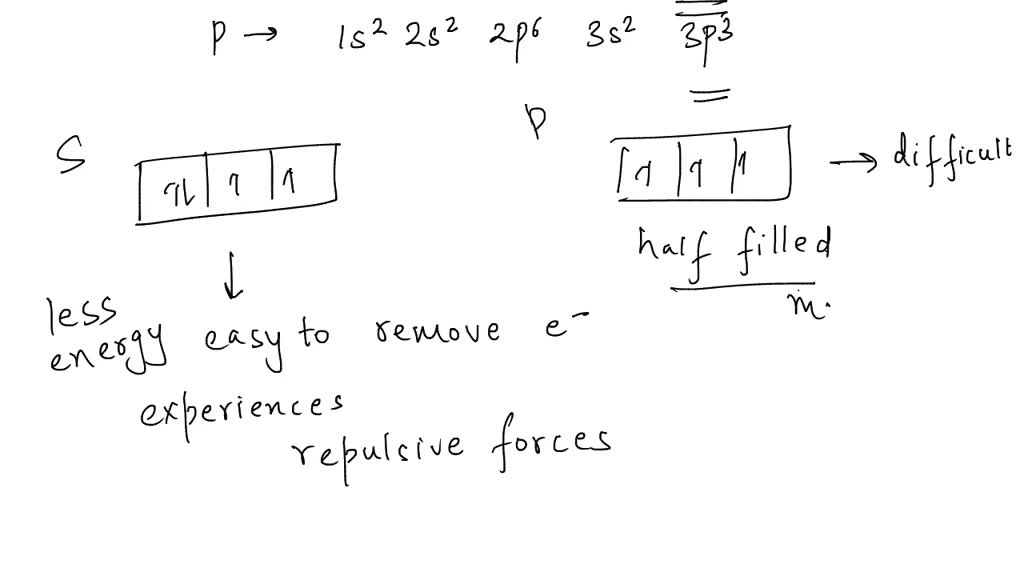 P → 1s² 2s² 2p⁶ 3s² 3p³
S
1l 1 1
P
1 1 1
→ difficult
half filled
m.
↓
less
energy easy to remove e⁻
experiences
repulsive forces